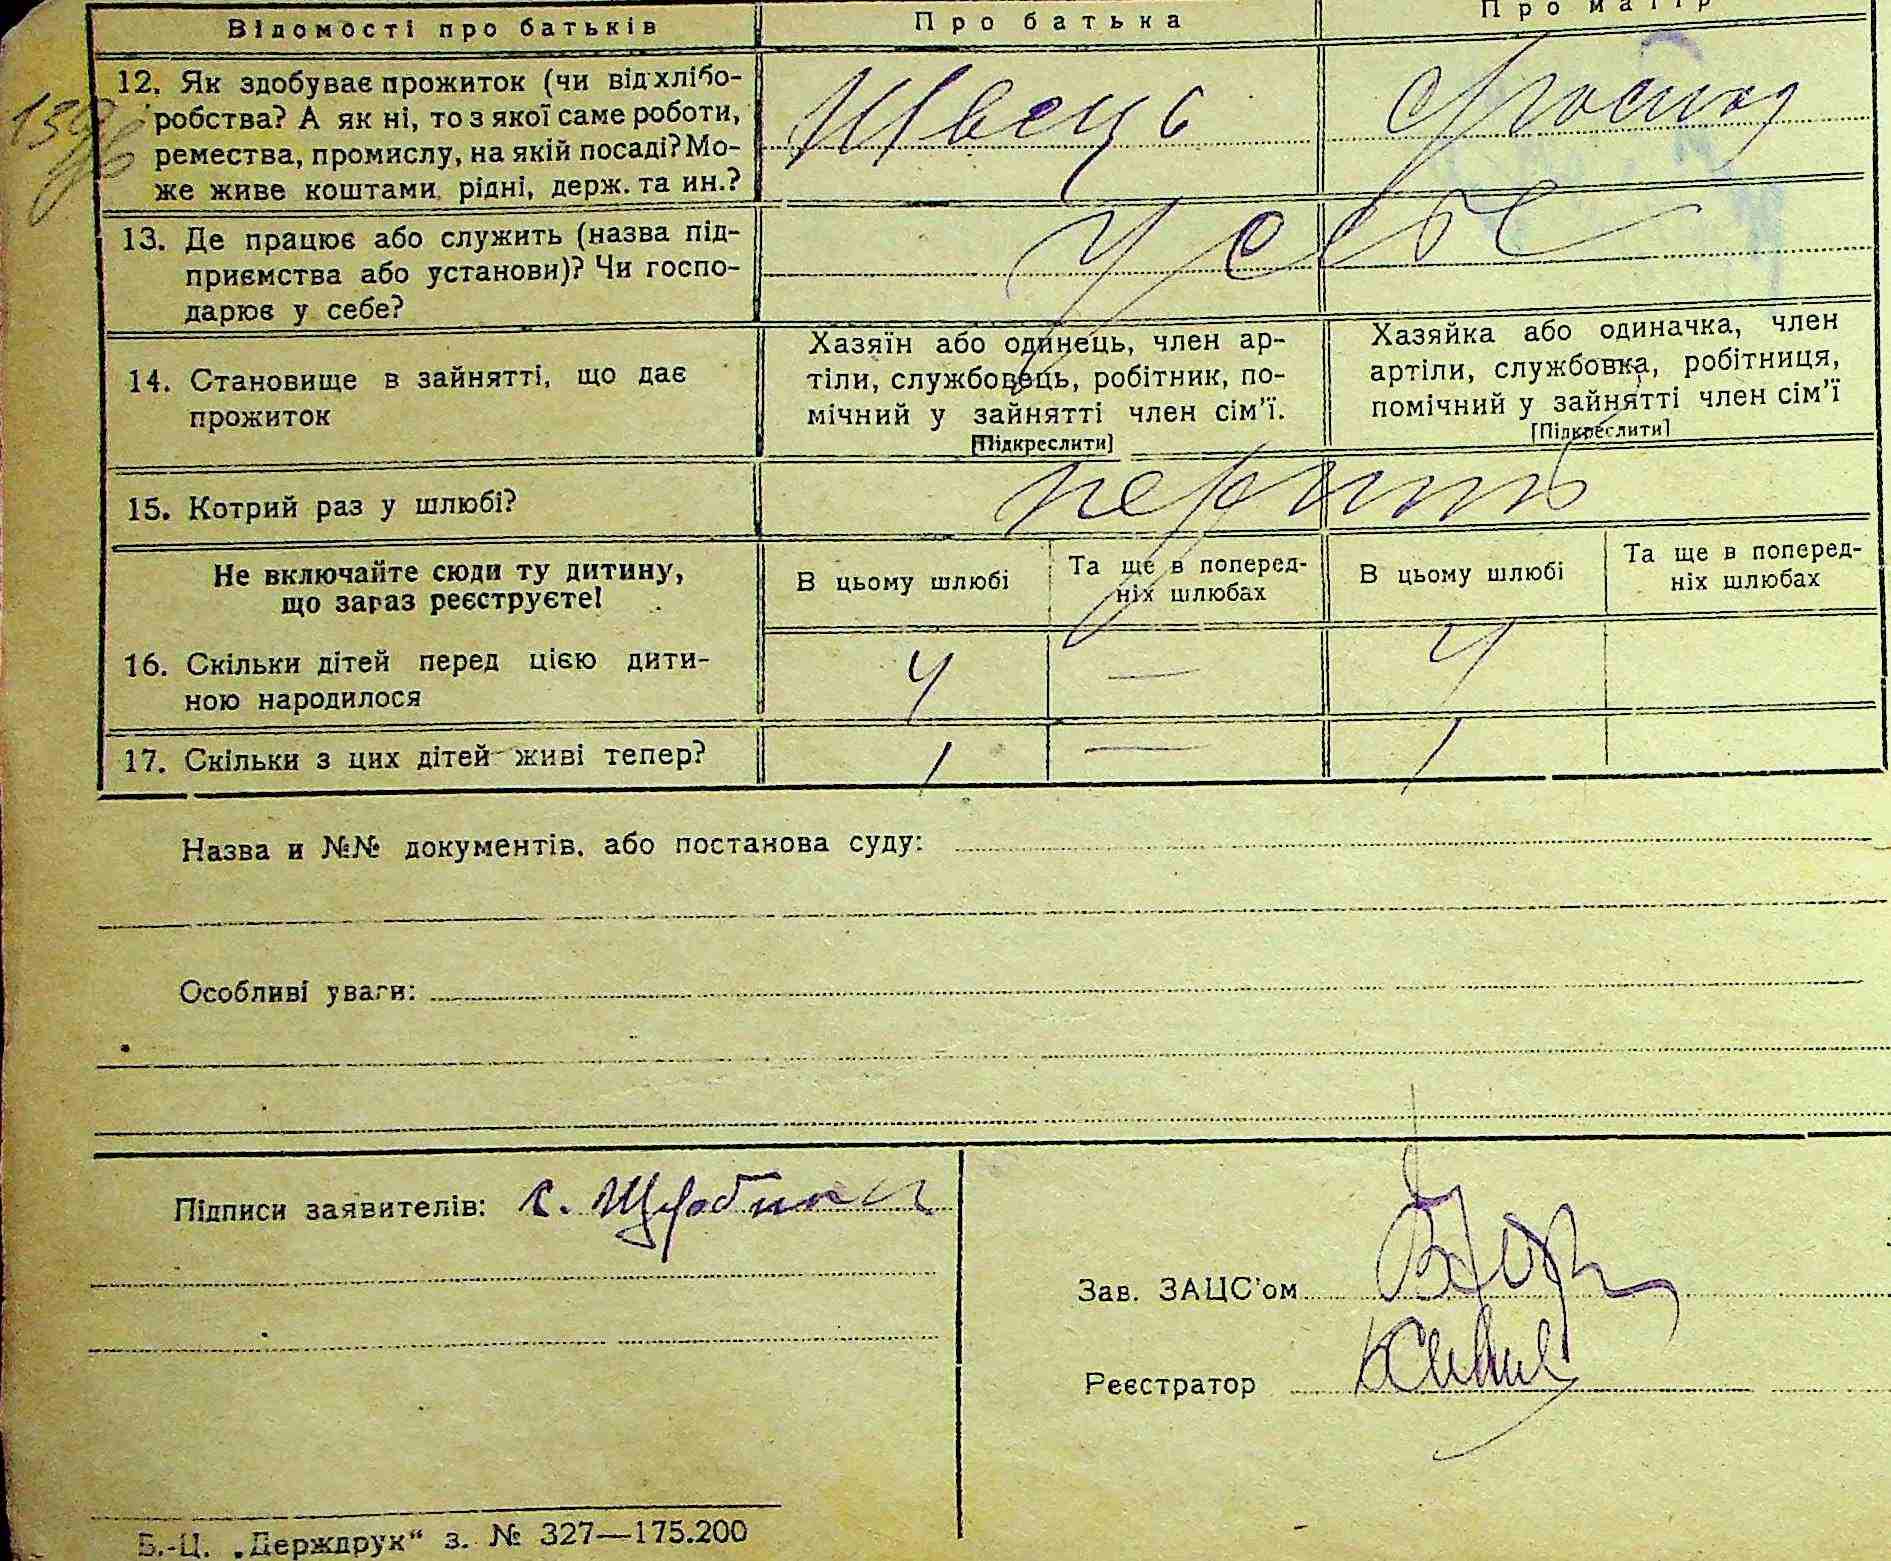 Відомості про батьків Про батька Про матір
12. Як здобуває прожиток (чи від хлібо-
робства? А як ні, то з якої саме роботи,
ремества, промислу, на якій посаді? Мо-
же живе коштами рідні, держ. та ин.?
Швець
13. Де працює або служить (назва під-
приємства або установи)? Чи госпо-
дарює у себе?
У себе
14. Становище в зайнятті, що дає
прожиток
Хазяїн або одинець, член ар-
тіли, службовець, робітник, по-
мічний у зайнятті член сім'ї.
[Підкреслити]
Хазяйка або одиначка, член
артіли, службовка, робітниця,
помічний у зайнятті член сім'ї
[Підкреслити]
15. Котрий раз у шлюбі?
перший
Не включайте сюди ту дитину,
що зараз реєструєте!
В цьому шлюбі
Та ще в поперед-
ніх шлюбах
В цьому шлюбі
Та ще в поперед-
ніх шлюбах
16. Скільки дітей перед цією дити-
ною народилося
4 — 4
17. Скільки з цих дітей живі тепер? 1 — 1
Назва и №№ документів, або постанова суду:
Особливі уваги:
Підписи заявителів:
Зав. ЗАЦС'ом
Реєстратор
Б.-Ц. „Держдрук“ з. № 327—175.200